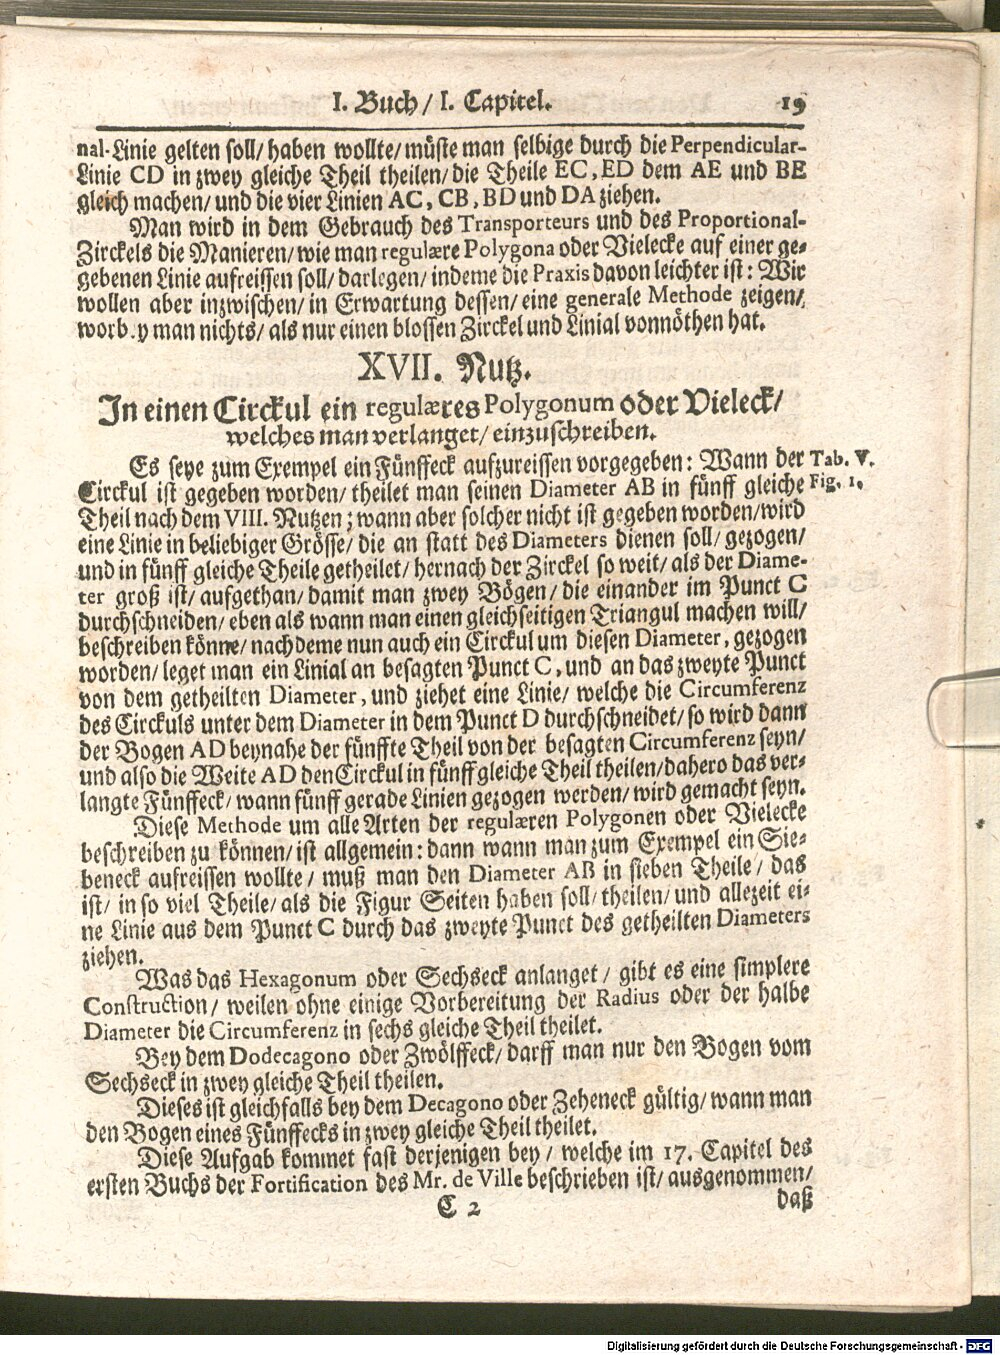 I. Buch/ I. Capitel. 19
nal-Linie gelten soll/ haben wollte/ müste man selbige durch die Perpendicular-
Linie CD in zwey gleiche Theil theilen/ die Theile EC, ED dem AE und BE
gleich machen/ und die vier Linien AC, CB, BD und DA ziehen.
Man wird in dem Gebrauch des Transporteurs und des Proportional-
Zirckels die Manieren/ wie man regulære Polygona oder Vielecke auf einer ge-
gebenen Linie aufreissen soll/ darlegen/ indeme die Praxis davon leichter ist: Wir
wollen aber inzwischen/ in Erwartung dessen/ eine generale Methode zeigen/
worb.y man nichts/ als nur einen blossen Zirckel und Linial vonnöthen hat.
XVII. Nutz.
In einen Circkul ein regulæres Polygonum oder Vieleck/
welches man verlanget/ einzuschreiben.
Es seye zum Exempel ein Fünffeck aufzureissen vorgegeben: Wann der Tab. V.
Circkul ist gegeben worden/ theilet man seinen Diameter AB in fünff gleiche Fig. 1.
Theil nach dem VIII. Nutzen; wann aber solcher nicht ist gegeben worden/ wird
eine Linie in beliebiger Grösse/ die an statt des Diameters dienen soll/ gezogen/
und in fünff gleiche Theile getheilet/ hernach der Zirckel so weit/ als der Diame-
ter groß ist/ aufgethan/ damit man zwey Bögen/ die einander im Punct C
durchschneiden/ eben als wann man einen gleichseitigen Triangul machen will/
beschreiben könne/ nachdeme nun auch ein Circkul um diesen Diameter, gezogen
worden/ leget man ein Linial an besagten Punct C, und an das zweyte Punct
von dem getheilten Diameter, und ziehet eine Linie/ welche die Circumferenz
des Circkuls unter dem Diameter in dem Punct D durchschneidet/ so wird dann
der Bogen AD beynahe der fünffte Theil von der besagten Circumferenz seyn/
und also die Weite AD den Circkul in fünff gleiche Theil theilen/ dahero das ver-
langte Fünffeck/ wann fünff gerade Linien gezogen werden/ wird gemacht seyn.
Diese Methode um alle Arten der regulæren Polygonen oder Vielecke
beschreiben zu können/ ist allgemein: dann wann man zum Exempel ein Sie-
beneck aufreissen wollte/ muß man den Diameter AB in sieben Theile/ das
ist/ in so viel Theile/ als die Figur Seiten haben soll/ theilen/ und allezeit ei-
ne Linie aus dem Punct C durch das zweyte Punct des getheilten Diameters
ziehen.
Was das Hexagonum oder Sechseck anlanget/ gibt es eine simplere
Construction/ weilen ohne einige Vorbereitung der Radius oder der halbe
Diameter die Circumferenz in sechs gleiche Theil theilet.
Bey dem Dodecagono oder Zwölffeck/ darff man nur den Bogen vom
Sechseck in zwey gleiche Theil theilen.
Dieses ist gleichfalls bey dem Decagono oder Zeheneck gültig/ wann man
den Bogen eines Fünffecks in zwey gleiche Theil theilet.
Diese Aufgab kommet fast derjenigen bey/ welche im 17. Capitel des
ersten Buchs der Fortification des Mr. de Ville beschrieben ist/ ausgenommen/
C 2 daß
Digitalisierung gefördert durch die Deutsche Forschungsgemeinschaft - DFG